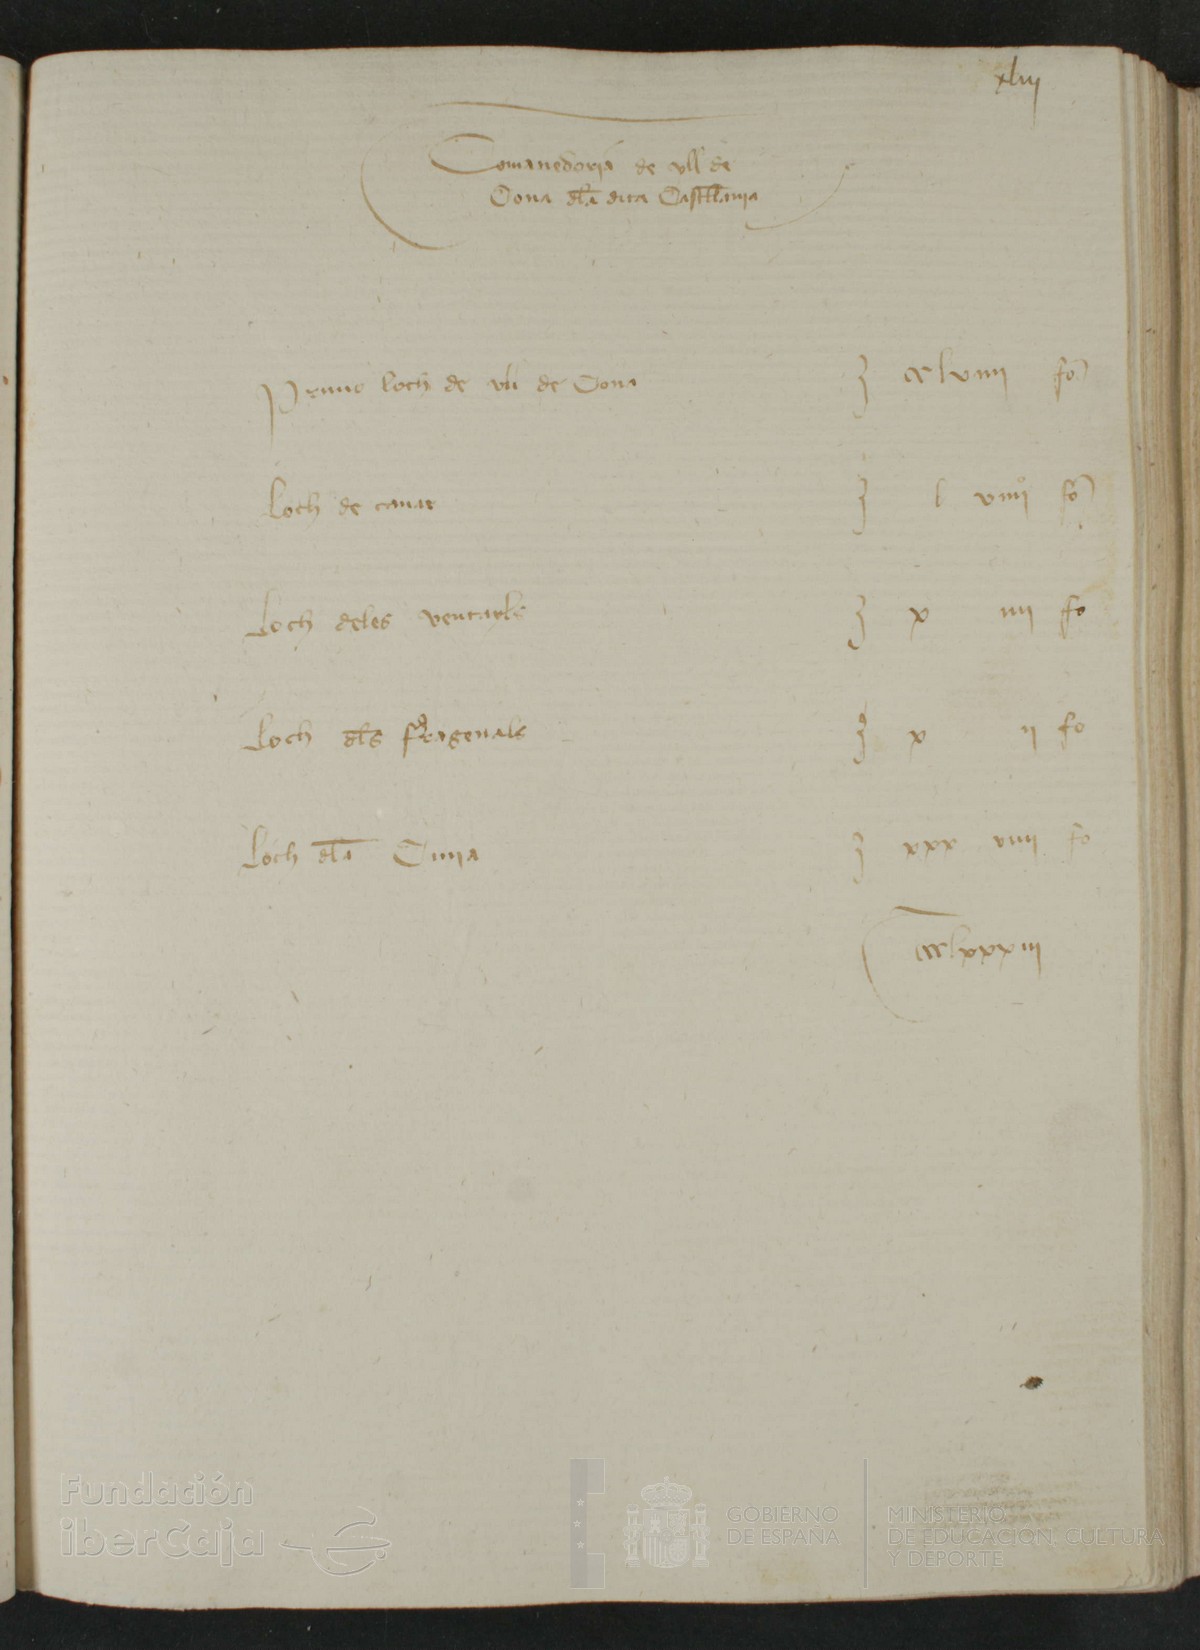 xliij
Comanedoria de vll de
Cona dla dita Castllania
Primo loch de vll de Cona cclviiii fo
Loch de canar l viiiiº fo
Loch deles ventayls x iiii fo
Loch dls fregenals x ii fo
Loch dla Cinia xxx viiii fo
cclxxxiii
Fundación
iberCaja
GOBIERNO
DE ESPAÑA
MINISTERIO
DE EDUCACIÓN, CULTURA
Y DEPORTE